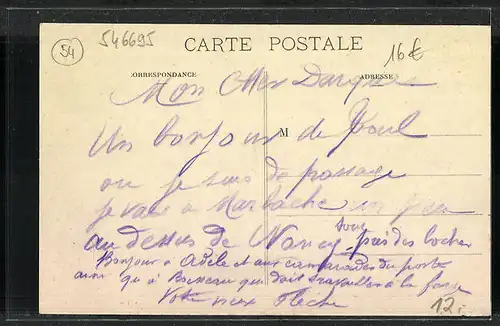 54
546695
CARTE POSTALE
16€
CORRESPONDANCE
ADRESSE
Mon Cher
Un bonjour M de Toul
ou je suis de passage
je vais a Marbache un peu
au dessus de Nancy tout près des boches
Bonjour a Adèle et aux camarades du poste
ainsi qu a qui doit travailler a la
Votre vieux
12.-